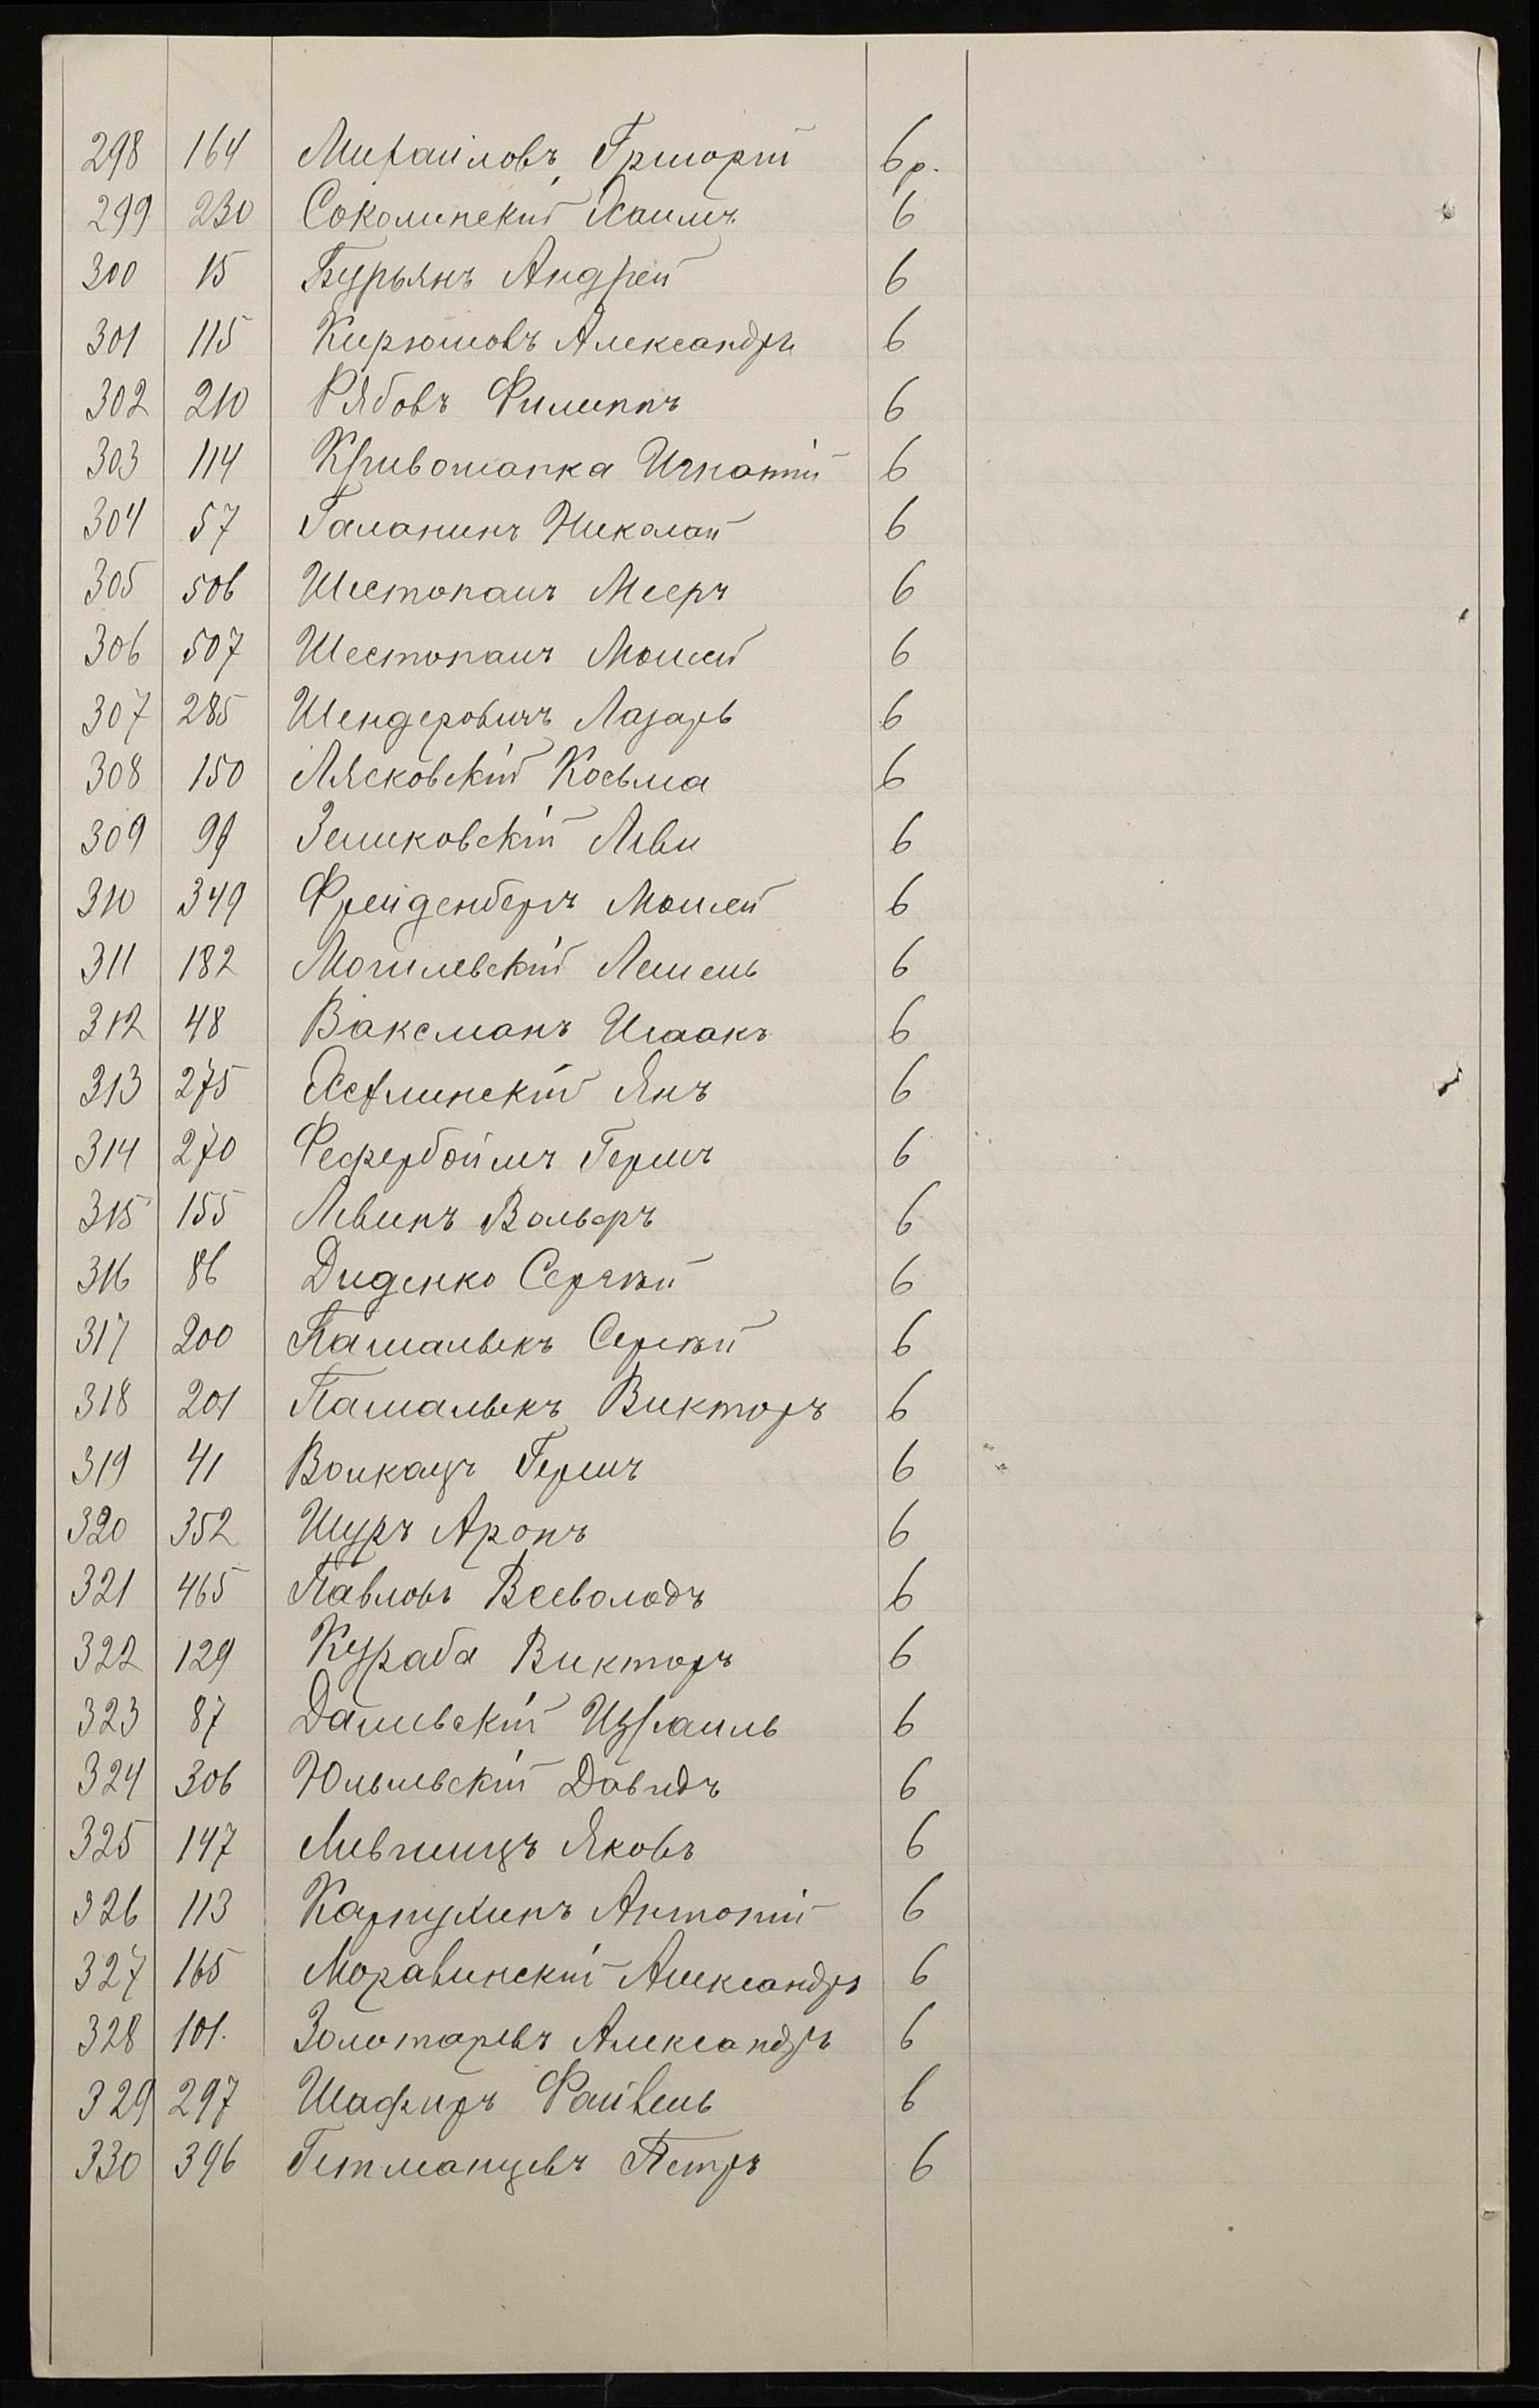 298 164 Михайловъ, Григорій 6 р.
299 230 Соколинскій Хаимъ 6
300 15 Бурьянъ Андрей 6
301 115 Кирюшовъ Александръ 6
302 210 Рябовъ Филиппъ 6
303 114 Кривошапка Игнатій 6
304 57 Галанинъ Николай 6
305 506 Шестопалъ Мееръ 6
306 507 Шестопалъ Моисей 6
307 285 Шендеровичъ Лазарь 6
308 150 Лясковскій Косьма 6
309 99 Зеликовскій Леви 6
310 349 Фрейденбергъ Моисей 6
311 182 Могилевскій Лейзень 6
312 48 Ваксманъ Исаакъ 6
313 275 Хехлинскій Янъ 6
314 270 Фефербоймъ Гершъ 6
315 155 Левинъ Вольфъ 6
316 86 Диденко Сергѣй 6
317 200 Пашалыкъ Сергѣй 6
318 201 Пашалыкъ Викторъ 6
319 41 Волкацъ Гершъ 6
320 352 Шуръ Аронъ 6
321 465 Павловъ Всеволодъ 6
322 129 Кураба Викторъ 6
323 87 Далевскій Израиль 6
324 306 Юльевскій Давидъ 6
325 147 Лившицъ Яковъ 6
326 113 Карпухинъ Антоній 6
327 165 Моравинскій Александръ 6
328 101. Золотаревъ Александръ 6
329 297 Шафиръ Файвель 6
330 396 Гетманцевъ Петръ 6